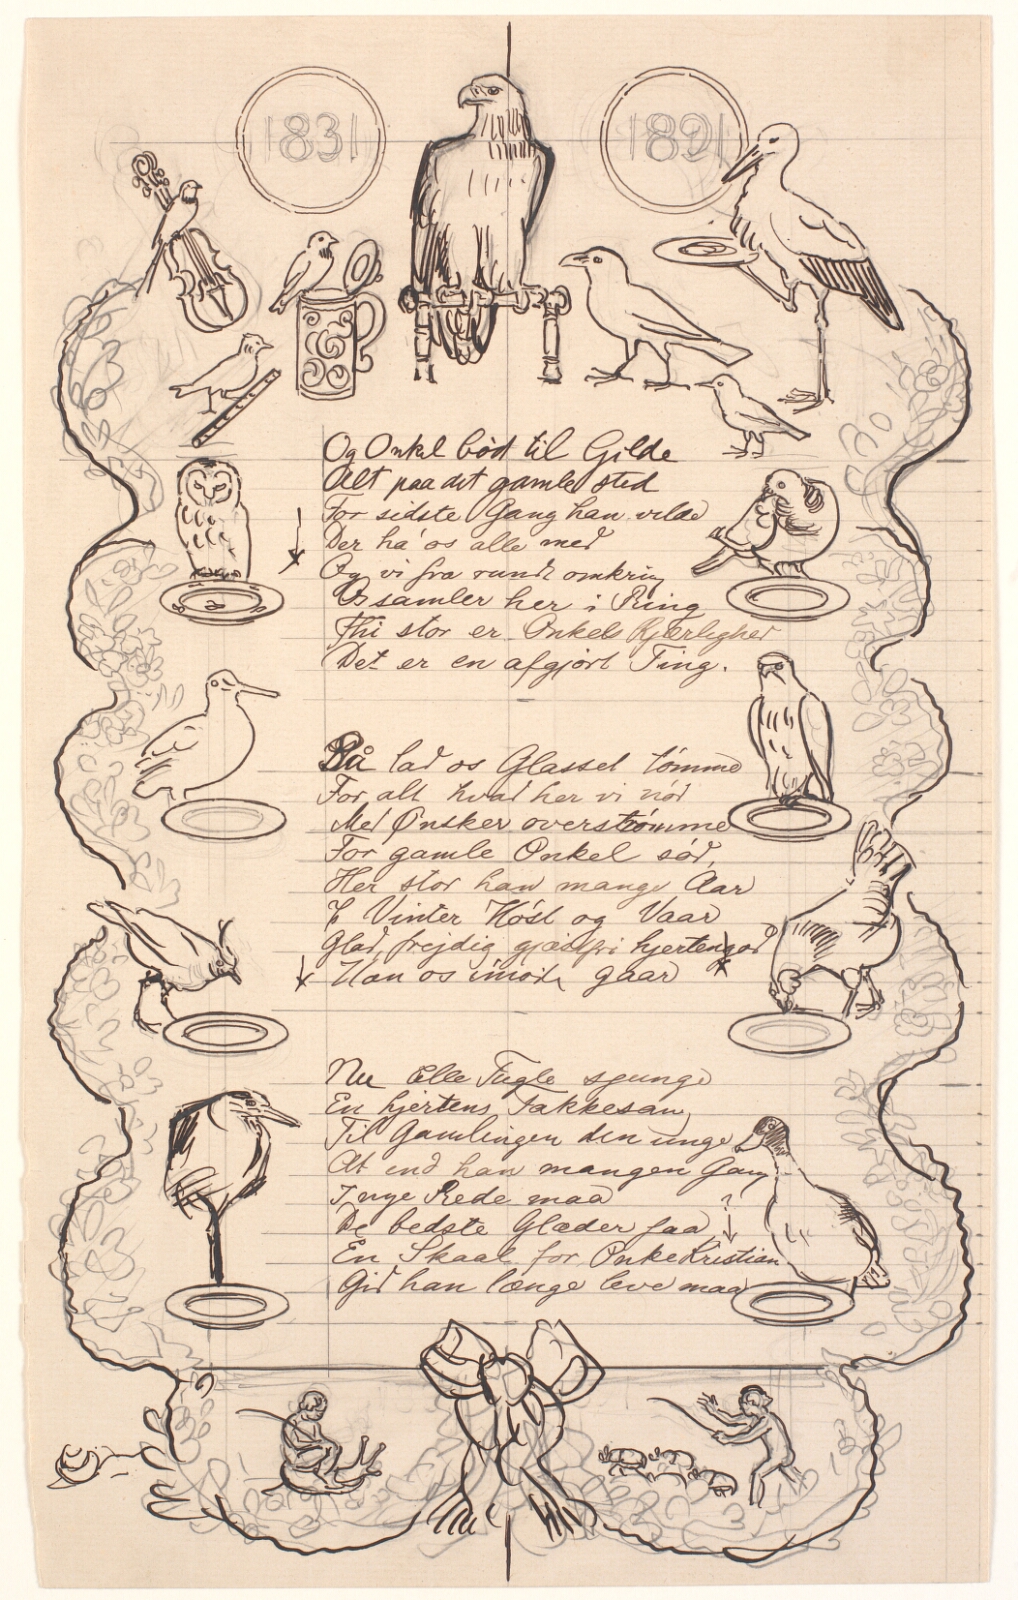 1831
1891
Og Onkel bød til Gilde
Alt paa det gamle sted
For sidste Gang han vilde
Der ha' os alle med
Og vi fra rundt omkring
Os samler her i Ring
Thi stor er Onkels Kjærlighed
Det er en afgjort Ting.
Så lad os Glasset tømme
For alt hvad her vi nød
Med Ønsker overstrømme
For gamle Onkel sød,
Her stod han mange Aar
I Vinter Høst og Vaar
Glad, frejdig gjæstfri hjertengod
Han os imøde gaar
Nu alle Fugle sjunge
En hjertens Takkesang
Til Gamlingen den unge
At end han mangen Gang
I nye Rede maa
De bedste Glæder faa
?
En Skaal for Onkel Kristian
Gid han længe leve maa